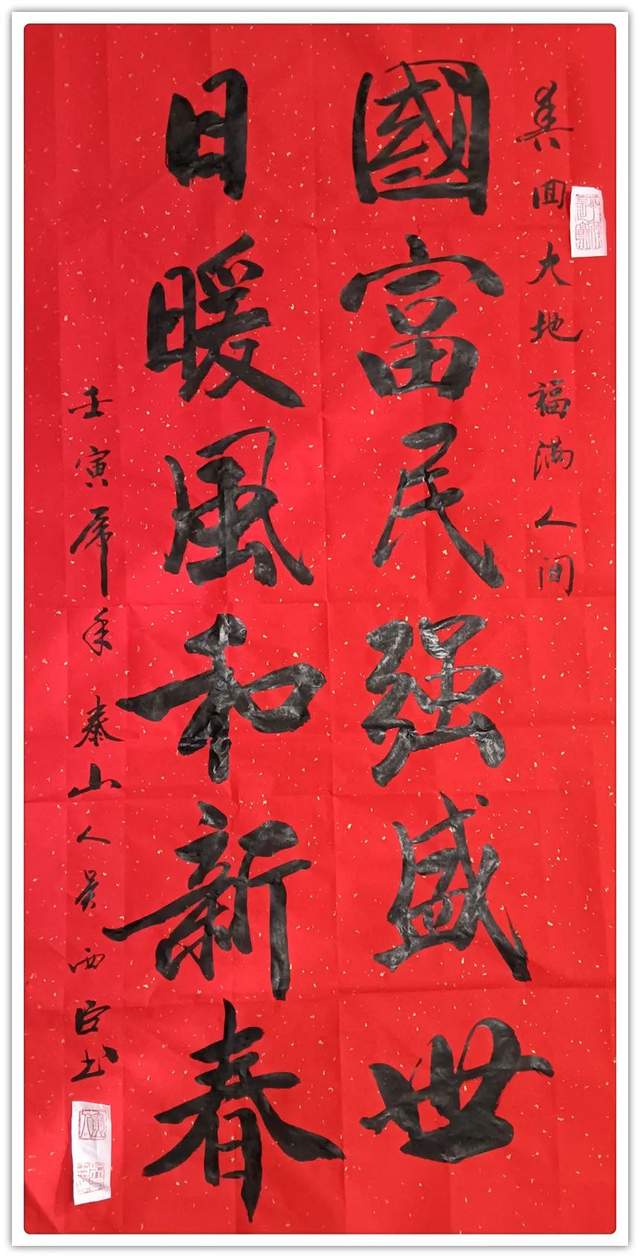 春回大地福满人间
國富民强盛世
日暖風和新春
壬寅虎年泰山人吴西臣书